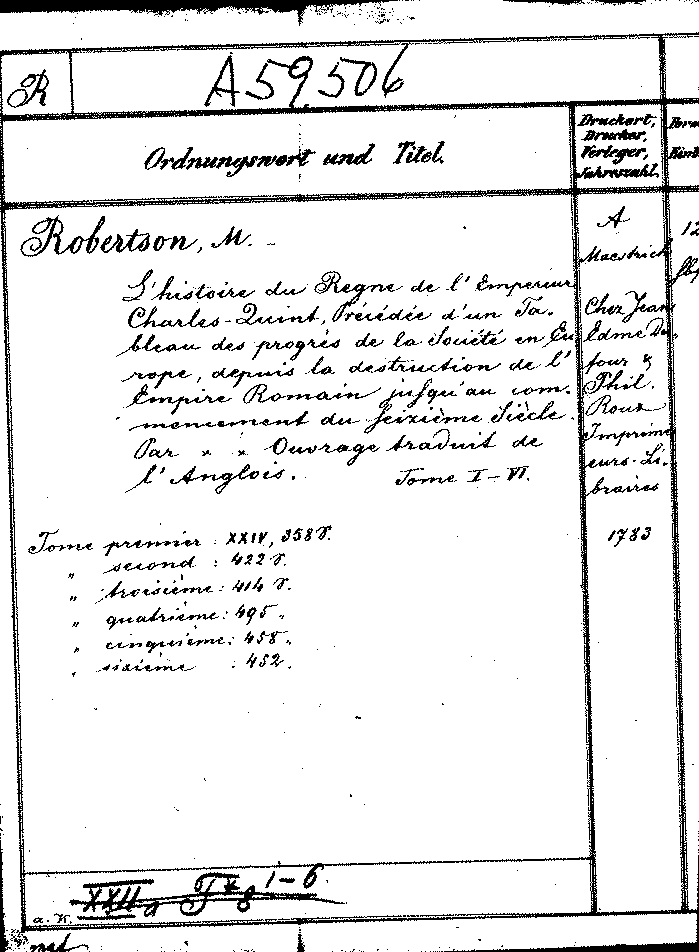 R
A 59,506
Ordnungswort und Titel.
Druckort,
Drucker,
Verleger,
Jahreszahl.
Robertson, M. -
L'histoire du Regne de l'Empereur
Charles-Quint, Précédée d'un Ta-
bleau des progrès de la Société en Eu
rope, depuis la destruction de l'
Empire Romain jusqu'au com-
mencement du seizième Siècle.
Par x x Ouvrage traduit de
l'Anglois. Tome I-VI.
A
Maestrich
Chez Jean
Edme Du
four &
Phil.
Roux
Imprim
eurs-Li-
braires
1783
12
Tome premier : XXIV, 358 S.
" second : 422 S.
" troisième : 414 S.
" quatrième : 495 "
" cinquième : 458 "
" sixième : 452 "
XXII a F x 8 1-6
a. W.